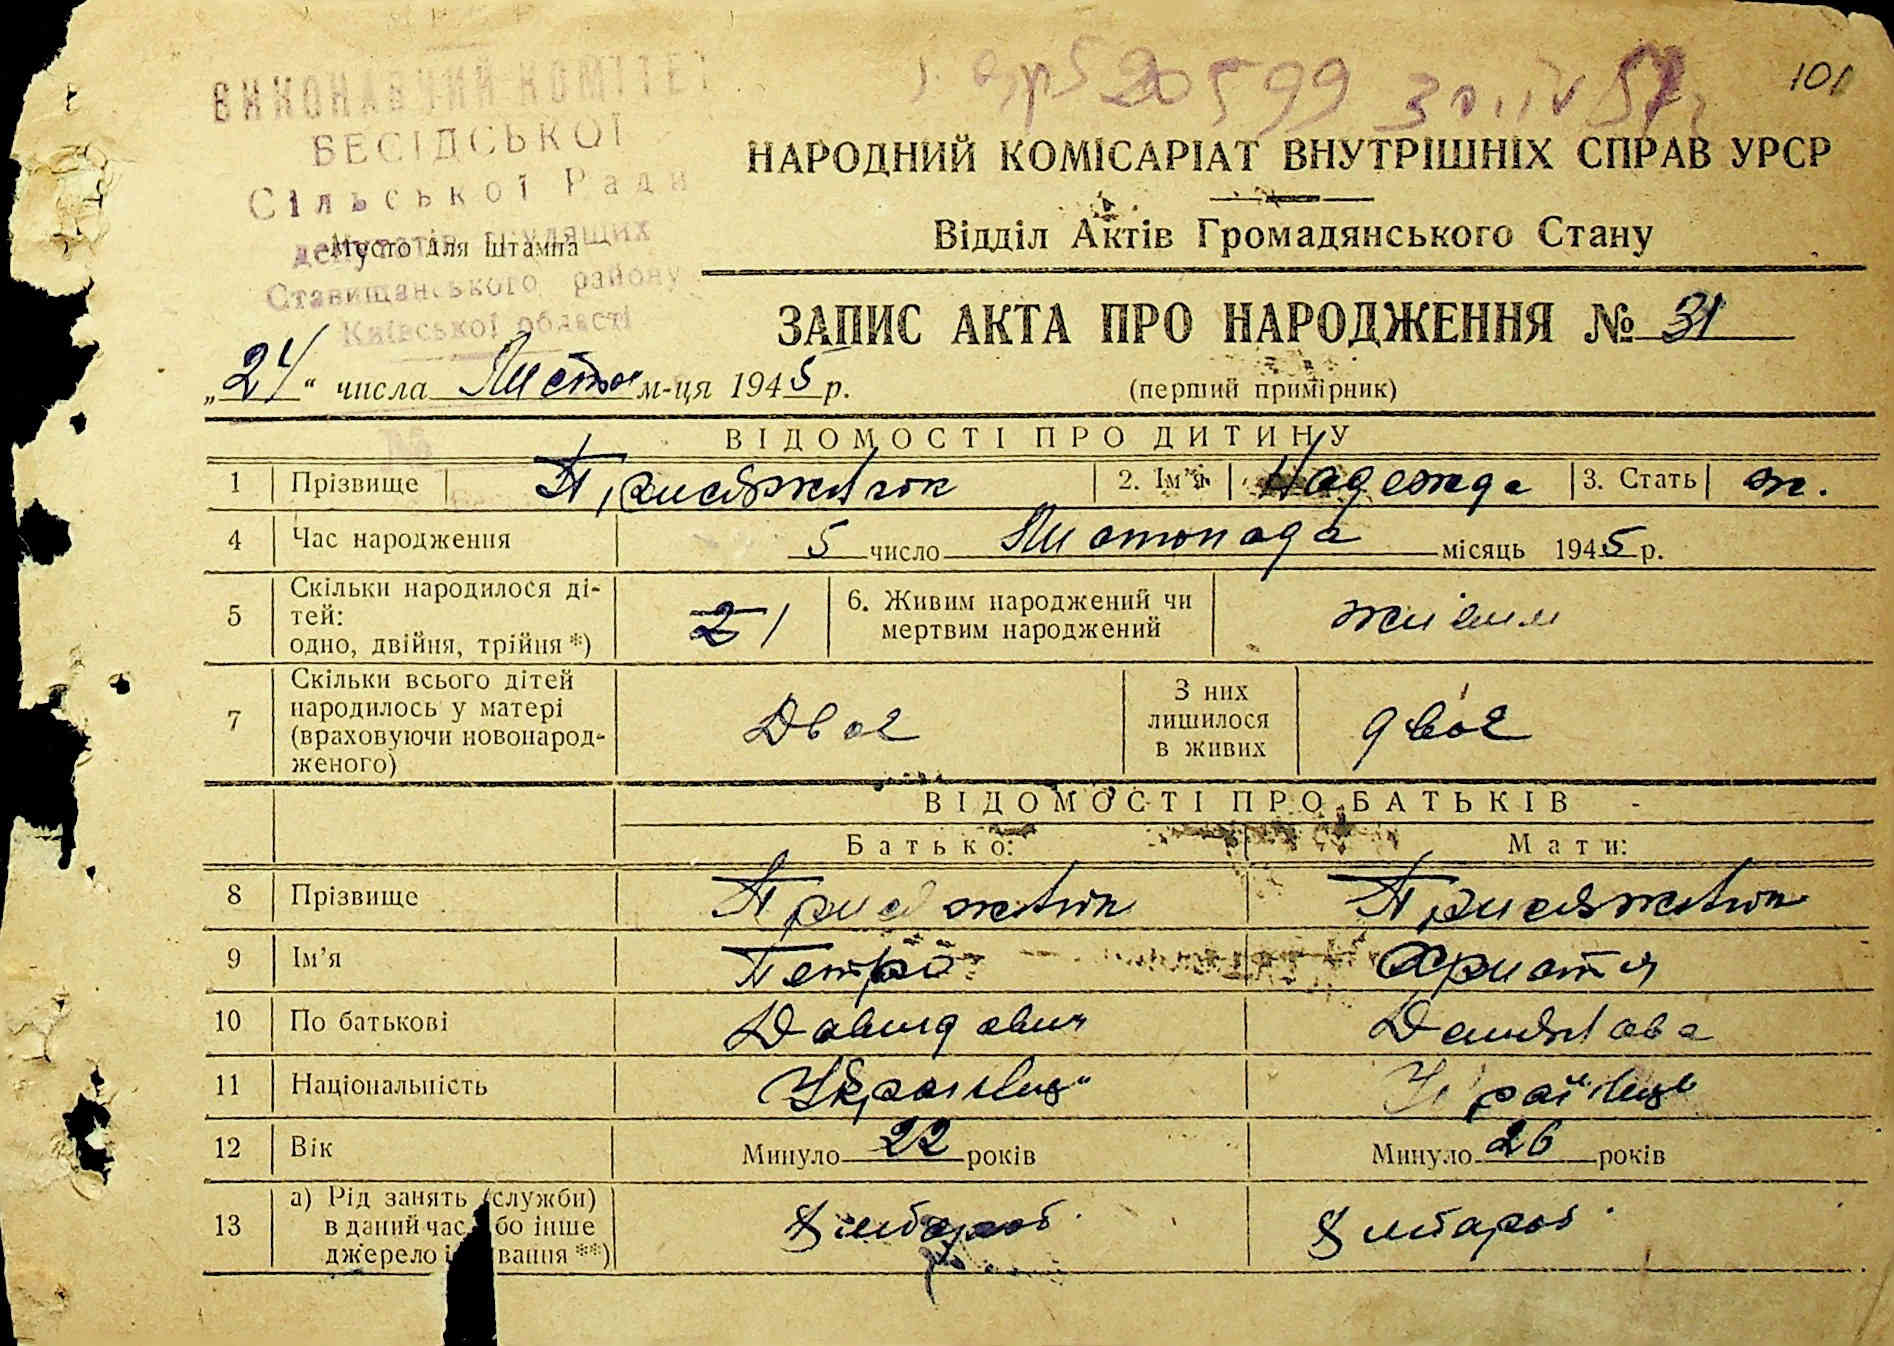 101
ВИКОНАВЧИЙ КОМІТЕТ
БЕСІДСЬКОЇ
Сільської Ради
депутатів трудящих
Ставищанського району
Київської області
Место для Штампа
20599 30.IV 57
НАРОДНИЙ КОМІСАРІАТ ВНУТРІШНІХ СПРАВ УРСР
Відділ Актів Громадянського Стану
ЗАПИС АКТА ПРО НАРОДЖЕННЯ № 31
(перший примірник)
„24“ числа Листоп м-ця 1945 р.
ВІДОМОСТІ ПРО ДИТИНУ
1 Прізвище Присяжнюк 2. Ім'я Надежда 3. Стать ж.
4 Час народження 5 число Листопада місяць 1945 р.
5 Скільки народилося ді-
тей:
одно, двійня, трійня *) 2 1
6. Живим народжений чи
мертвим народжений живим
7 Скільки всього дітей
народилось у матері
(враховуючи новонарод-
женого) Двоє
З них
лишилося
в живих двоє
ВІДОМОСТІ ПРО БАТЬКІВ
Батько: Мати:
8 Прізвище Присяжнюк Присяжнюк
9 Ім'я Петро Христя
10 По батькові Давидович Демянова
11 Національність Українець Українець
12 Вік Минуло 22 років Минуло 26 років
13 а) Рід занять (служби)
в даний час бо інше
джерело і вання **)